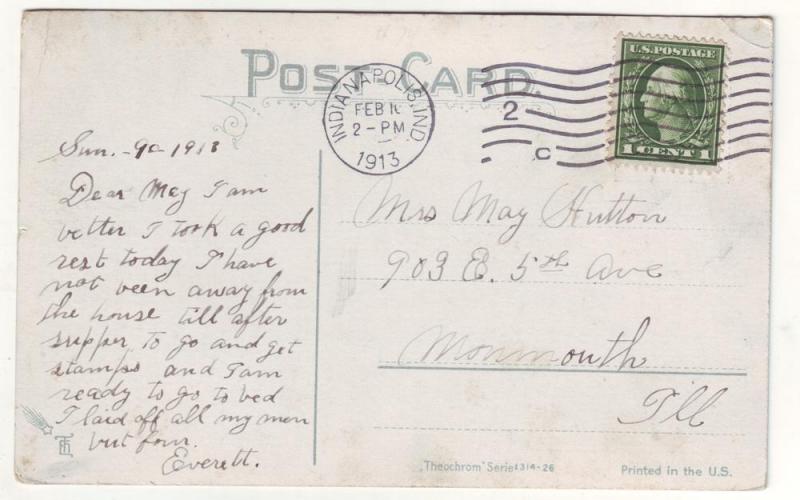 POST CARD.
INDIANAPOLIS, IND.
FEB 10
2-PM
1913
2
C
U.S. POSTAGE
1 CENT 1
Sun. - 9 - 1913
Dear May I am
better I took a good
rest today I have
not been away from
the house till after
supper to go and get
stamps and I am
ready to go to bed
I laid off all my men
but four.
Everett.
Mrs May Hutton
903 E. 5th Ave
Monmouth
Ill
„Theochrom" Serie 1314-26
Printed in the U.S.